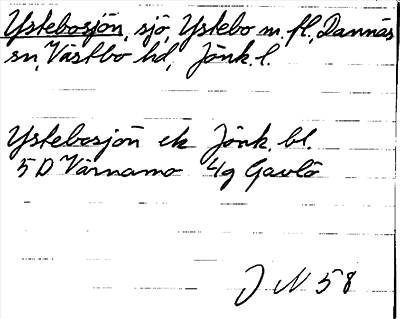 Ystebosjön, sjö, Ystebo m. fl., Dannäs
sn, Västbo hd, Jönk. l.
Ystebosjön ek Jönk. bl.
5 D Värnamo 4g Gavlö
J N 58